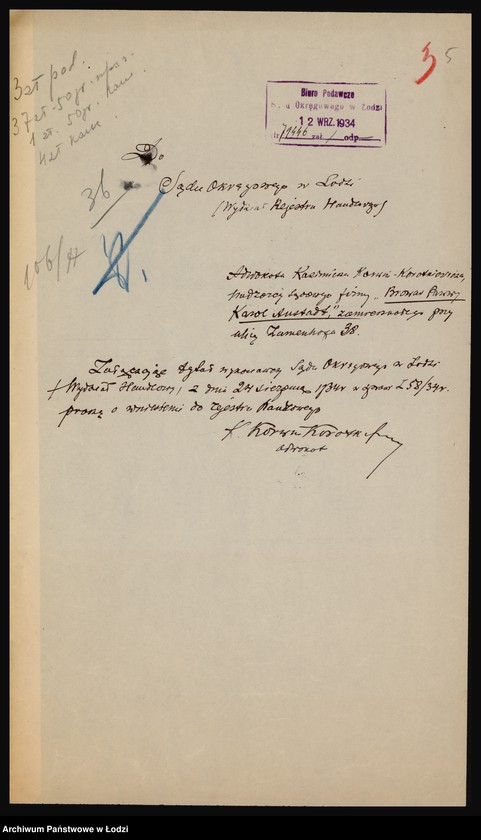 3 5
3 zł pod.
37 zł. 50 gr.
1 zł. 50 gr. kanc.
4 zł kanc.
Biuro Podawcze
Sądu Okręgowego w Łodzi
12 WRZ. 1934
zał. odp.
Do
36
Sądu Okręgowego w Łodzi
(Wydział Rejestru Handlowego)
106/A
Adwokata Kazimierza Korwin-Korotkiewicza,
nadzorcy sądowego firmy „Browar Parowy
Karol Anstadt", zamieszkałego przy
ulicy Zamenhofa 38.
Załączając tytuł wykonawczy Sądu Okręgowego w Łodzi
/Wydział Handlowy/ z dnia 24 sierpnia 1934 r w spraw. Z 58/34 r.
proszę o wniesienie do rejestru Handlowego
K. Korwin Korotk
adwokat
Archiwum Państwowe w Łodzi